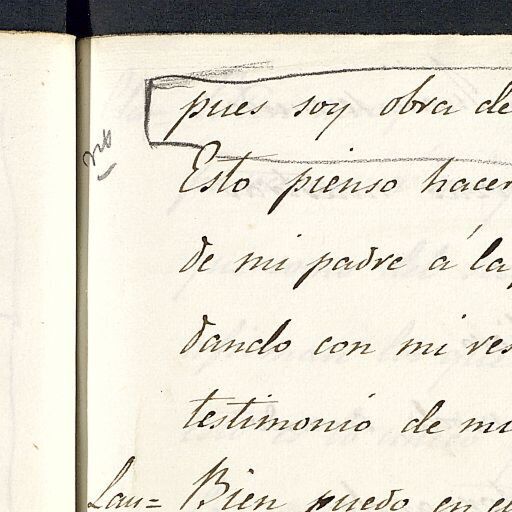 pues soy obra de
Esto pienso hacer
de mi padre á la
dando con mi res
testimonio de mi
Lau= Bien puedo en el